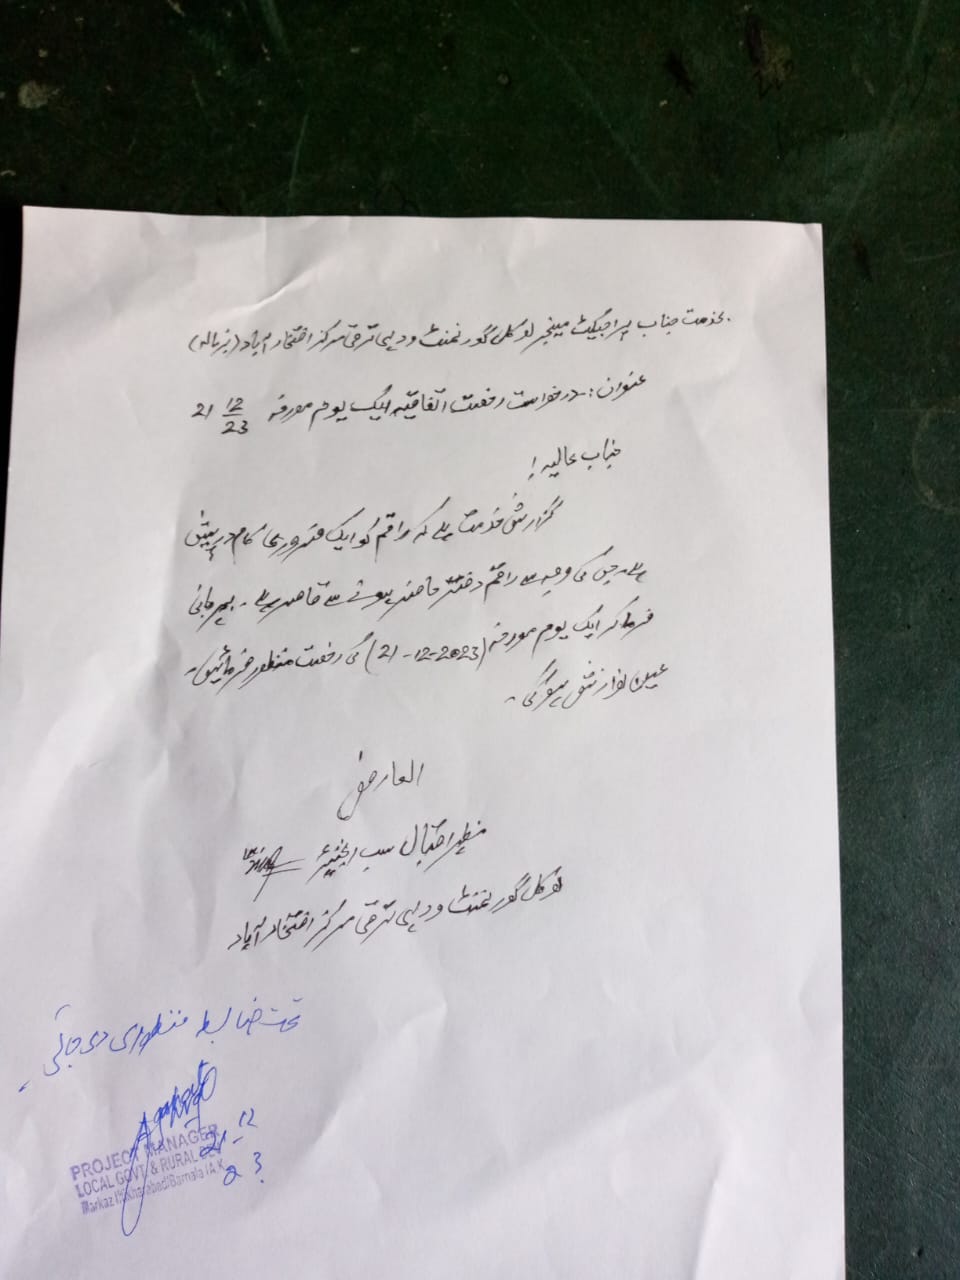 بخدمت جناب پراجیکٹ مینجر لوکل گورنمنٹ و دیہی ترقی مرکز افتخار آباد (برنالہ)
عنوان :- درخواست رخصت اتفاقیہ ایک یوم مورخہ 21 12/23
جناب عالیہ !
گزارش خدمت ہے کہ راقم کو ایک ضروری کام درپیش
ہے۔ جس کی وجہ سے راقم دفتر حاضر ہونے سے قاصر ہے ۔ مہربانی
فرما کر ایک یوم مورخہ (21-12-2023) کی رخصت منظور فرمائیں۔
عین نوازش ہوگی۔
العارض
اقبال سب انجینئر
لوکل گورنمنٹ و دیہی ترقی مرکز افتخار آباد
تحت ضابطہ منظوری دی جاتی ہے۔
21-12
23
PROJECT MANAGER
LOCAL GOVT. & RURAL DEV
Markaz Iftikharabad/Barnala /A.K